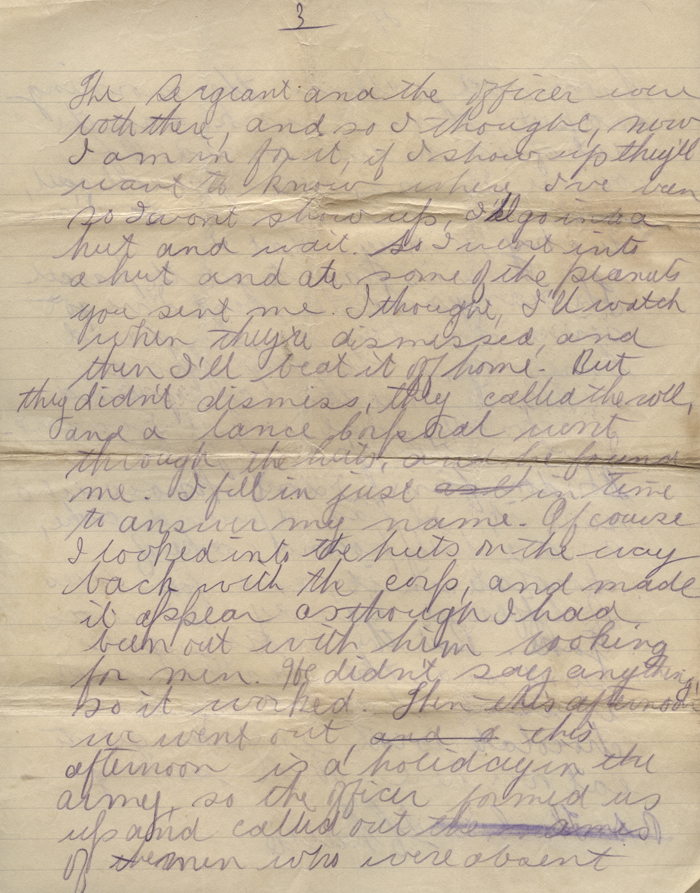 3
The Sergeant and the officer were
both there, and so I thought, now
I am in for it, if I show up they'll
want to know where I've been
so I wont show up, I'll go into a
hut and wait. So I went into
a hut and ate some of the peanuts
you sent me. I thought, I'll watch
when they're dismissed, and
then I'll beat it off home. But
they didn't dismiss, they called the roll,
and a lance Corporal went
through the huts, and he found
me. I fell in just in time
to answer my name. Of course
I looked into the huts on the way
back with the corp, and made
it appear as though I had
been out with him looking
for men. He didn't say anything
so it worked. Then this afternoon
we went out, and a this
afternoon is a holiday in the
army, so the officer formed us
up and called out the names
of the men who were absent